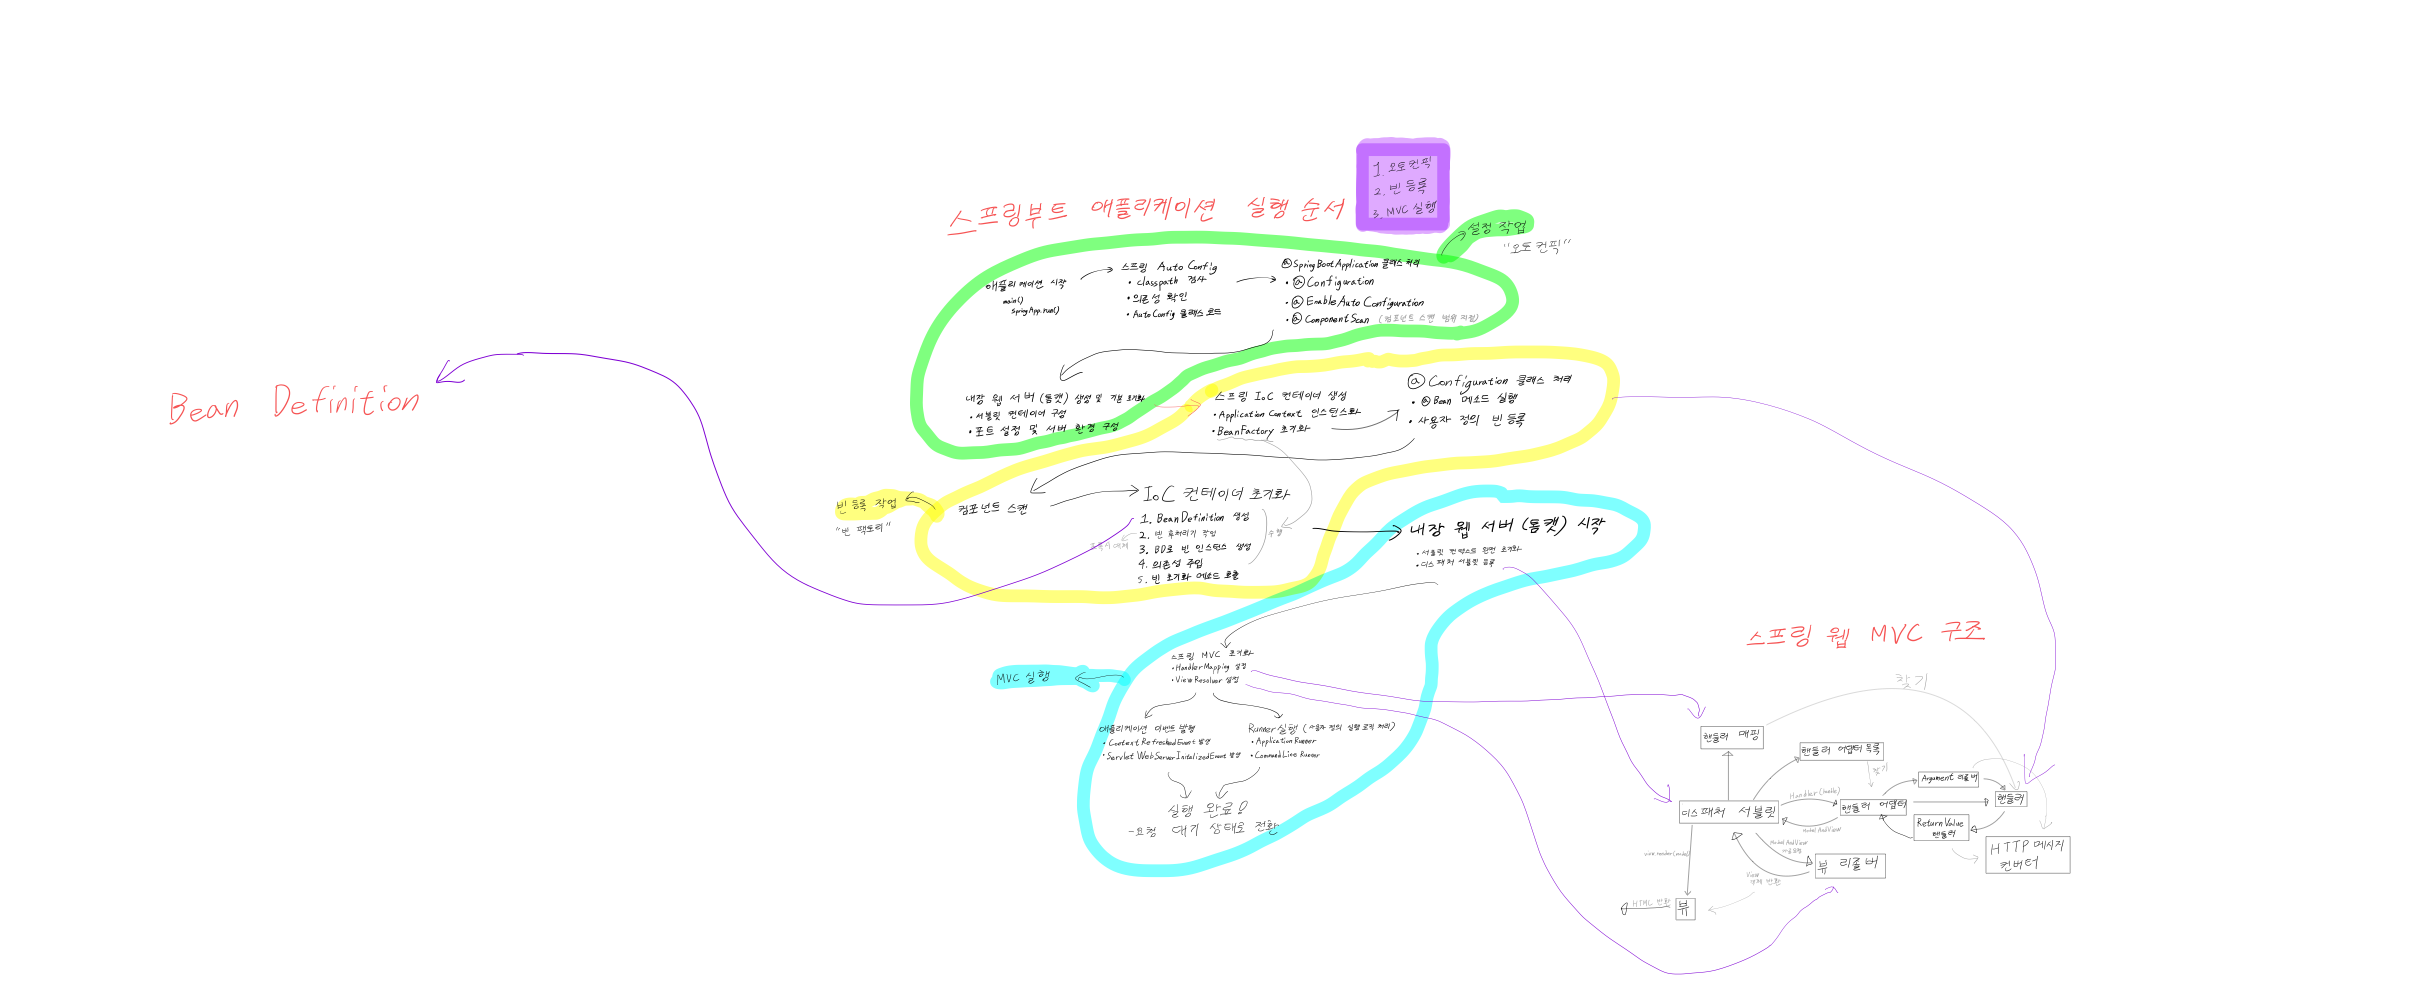 1. 오토컨픽
2. 빈 등록
3. MVC 실행
스프링부트 애플리케이션 실행 순서
설정 작업
"오토 컨픽"
애플리케이션 시작
main()
springApp.run()
스프링 Auto Config
• classpath 검사
• 의존성 확인
• Auto Config 클래스 로드
@SpringBootApplication 클래스 처리
• @Configuration
• @Enable Auto Configuration
• @ComponentScan (컴포넌트 스캔 범위 지정)
내장 웹 서버(톰캣) 생성 및 기본 초기화
• 서블릿 컨테이너 구성
• 포트 설정 및 서버 환경 구성
스프링 IoC 컨테이너 생성
• Application Context 인스턴스화
• BeanFactory 초기화
@Configuration 클래스 처리
• @Bean 메소드 실행
• 사용자 정의 빈 등록
Bean Definition
빈 등록 작업
"빈 팩토리"
컴포넌트 스캔
IoC 컨테이너 초기화
1. BeanDefinition 생성
2. 빈 후처리기 작업
3. BD로 빈 인스턴스 생성
4. 의존성 주입
5. 빈 초기화 메소드 호출
수행
내장 웹 서버(톰캣) 시작
• 서블릿 컨텍스트 완전 초기화
• 디스패처 서블릿 등록
MVC 실행
스프링 MVC 초기화
• HandlerMapping 설정
• View Resolver 설정
애플리케이션 이벤트 발행
• Context Refreshed Event 발생
• Servlet Web Server Initalized Event 발생
Runner 실행 (사용자 정의 실행 로직 처리)
• Application Runner
• Command Line Runner
실행 완료!
-요청 대기 상태로 전환
스프링 웹 MVC 구조
찾기
핸들러 매핑
핸들러 어댑터 목록
찾기
Argument 리졸버
Handler(handle)
디스패처 서블릿
핸들러 어댑터
핸들러
ModelAndView
ReturnValue
핸들러
HTTP 메시지
컨버터
ModelAndView
view.render(model)
뷰 리졸버
View
객체 반환
HTML 반환
뷰